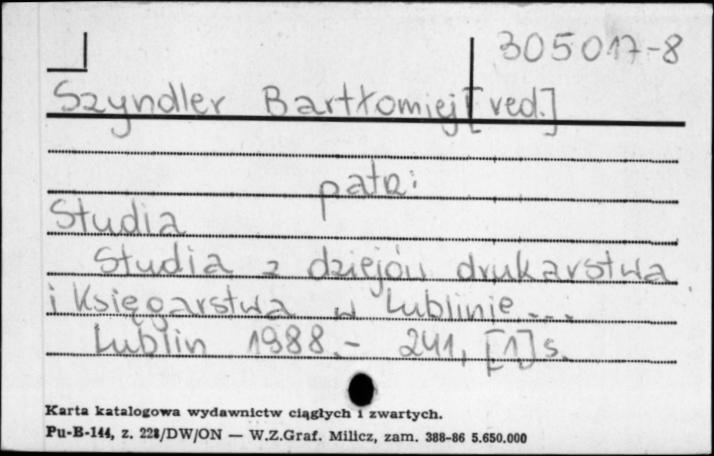 305017-8
Szyndler Bartłomiej [red.]
patrz:
Studia
Studia z dziejów drukarstwa
i Księgarstwa w Lublinie...
Lublin 1988.- 241, [1] s.
Karta katalogowa wydawnictw ciągłych i zwartych.
Pu-B-144, z. 228/DW/ON — W.Z.Graf. Milicz, zam. 388-86 5.650.000